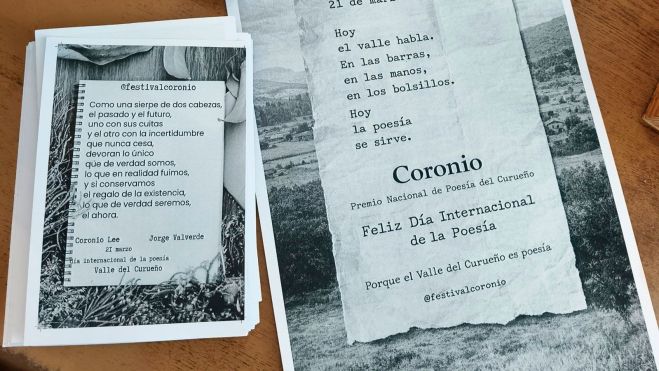 @festivalcoronio
Como una sierpe de dos cabezas,
el pasado y el futuro,
uno con sus cuitas
y el otro con la incertidumbre
que nunca cesa,
devoran lo único
que de verdad somos,
lo que en realidad fuimos,
y si conservamos
el regalo de la existencia,
lo que de verdad seremos,
el ahora.
Coronio Lee Jorge Valverde
21 marzo
Día internacional de la poesía
Valle del Curueño
21 de marzo
Hoy
el valle habla.
En las barras,
en las manos,
en los bolsillos.
Hoy
la poesía
se sirve.
Coronio
Premio Nacional de Poesía del Curueño
Feliz Día Internacional
de la Poesía
Porque el Valle del Curueño es poesía
@festivalcoronio